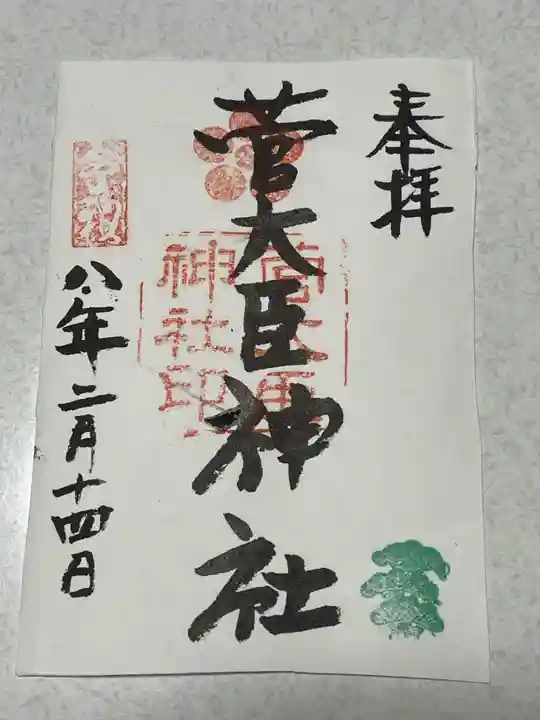 奉拝
菅大臣神社
菅大臣
神社印
令和
八年二月十四日